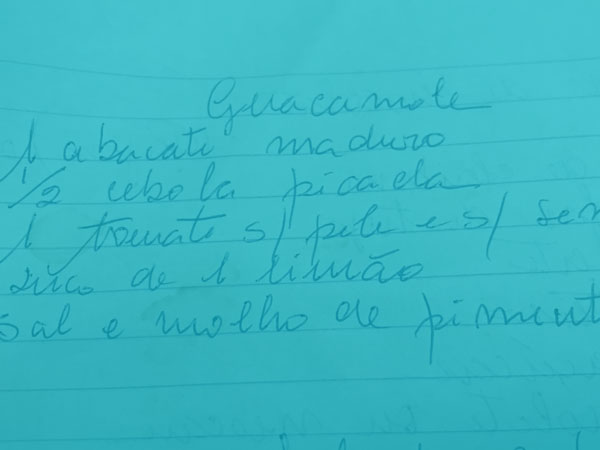 Guacamole
1 abacate maduro
1/2 cebola picada
1 tomate s/ pele e s/ sem
suco de 1 limão
sal e molho de piment